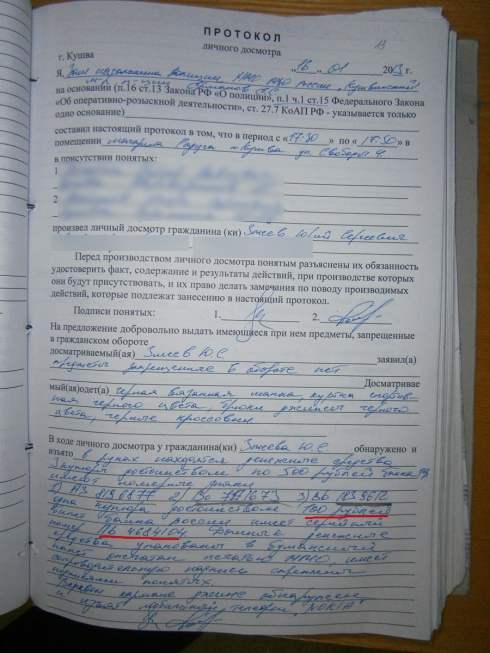 ПРОТОКОЛ
личного досмотра
13
г. Кушва „16„ 01 2013 г.
Я,
на основании (п.16 ст.13 Закона РФ «О полиции», п.1 ч.1 ст.15 Федерального Закона
«Об оперативно-розыскной деятельности», ст. 27.7 КоАП РФ - указывается только
одно основание)
составил настоящий протокол в том, что в период с «17:30 » по «17:50» в
помещении магазина Радуга г. Кушва ул. Свободы 4
в присутствии понятых:
1
2
произвел личный досмотр гражданина (ки) Юрий Сергеевич
Перед производством личного досмотра понятым разъяснены их обязанность
удостоверить факт, содержание и результаты действий, при производстве которых
они будут присутствовать, и их право делать замечания по поводу производимых
действий, которые подлежат занесению в настоящий протокол.
Подписи понятых: 1. 2.
На предложение добровольно выдать имеющиеся при нем предметы, запрещенные
в гражданском обороте
досматриваемый(ая) Ю.С заявил(а)
предметы запрещенные в обороте нет
Досматривае
мый(ая)одет(а) черная вязанная шапка, куртка спортив-
ная черного цвета, брюки джинсы черного
цвета, черные кроссовки
В ходе личного досмотра у гражданина(ки) Ю.С. обнаружено и
изъято в руках находятся денежные средства
3 купюры достоинством по 500 рублей банка
имеют номерные знаки
1) АЗ 8186877 2) 3)
одна купюра достоинством 100 рублей
билет банка россии имеет серийный
номер 4684104 Данные денежные
средства упакованы в бумажный
пакет опечатан печатью имеет
сопроводительную надпись скреплен
подписями понятых.
В кармане джинс обнаружен
и изъят мобильный телефон „NOKIA"